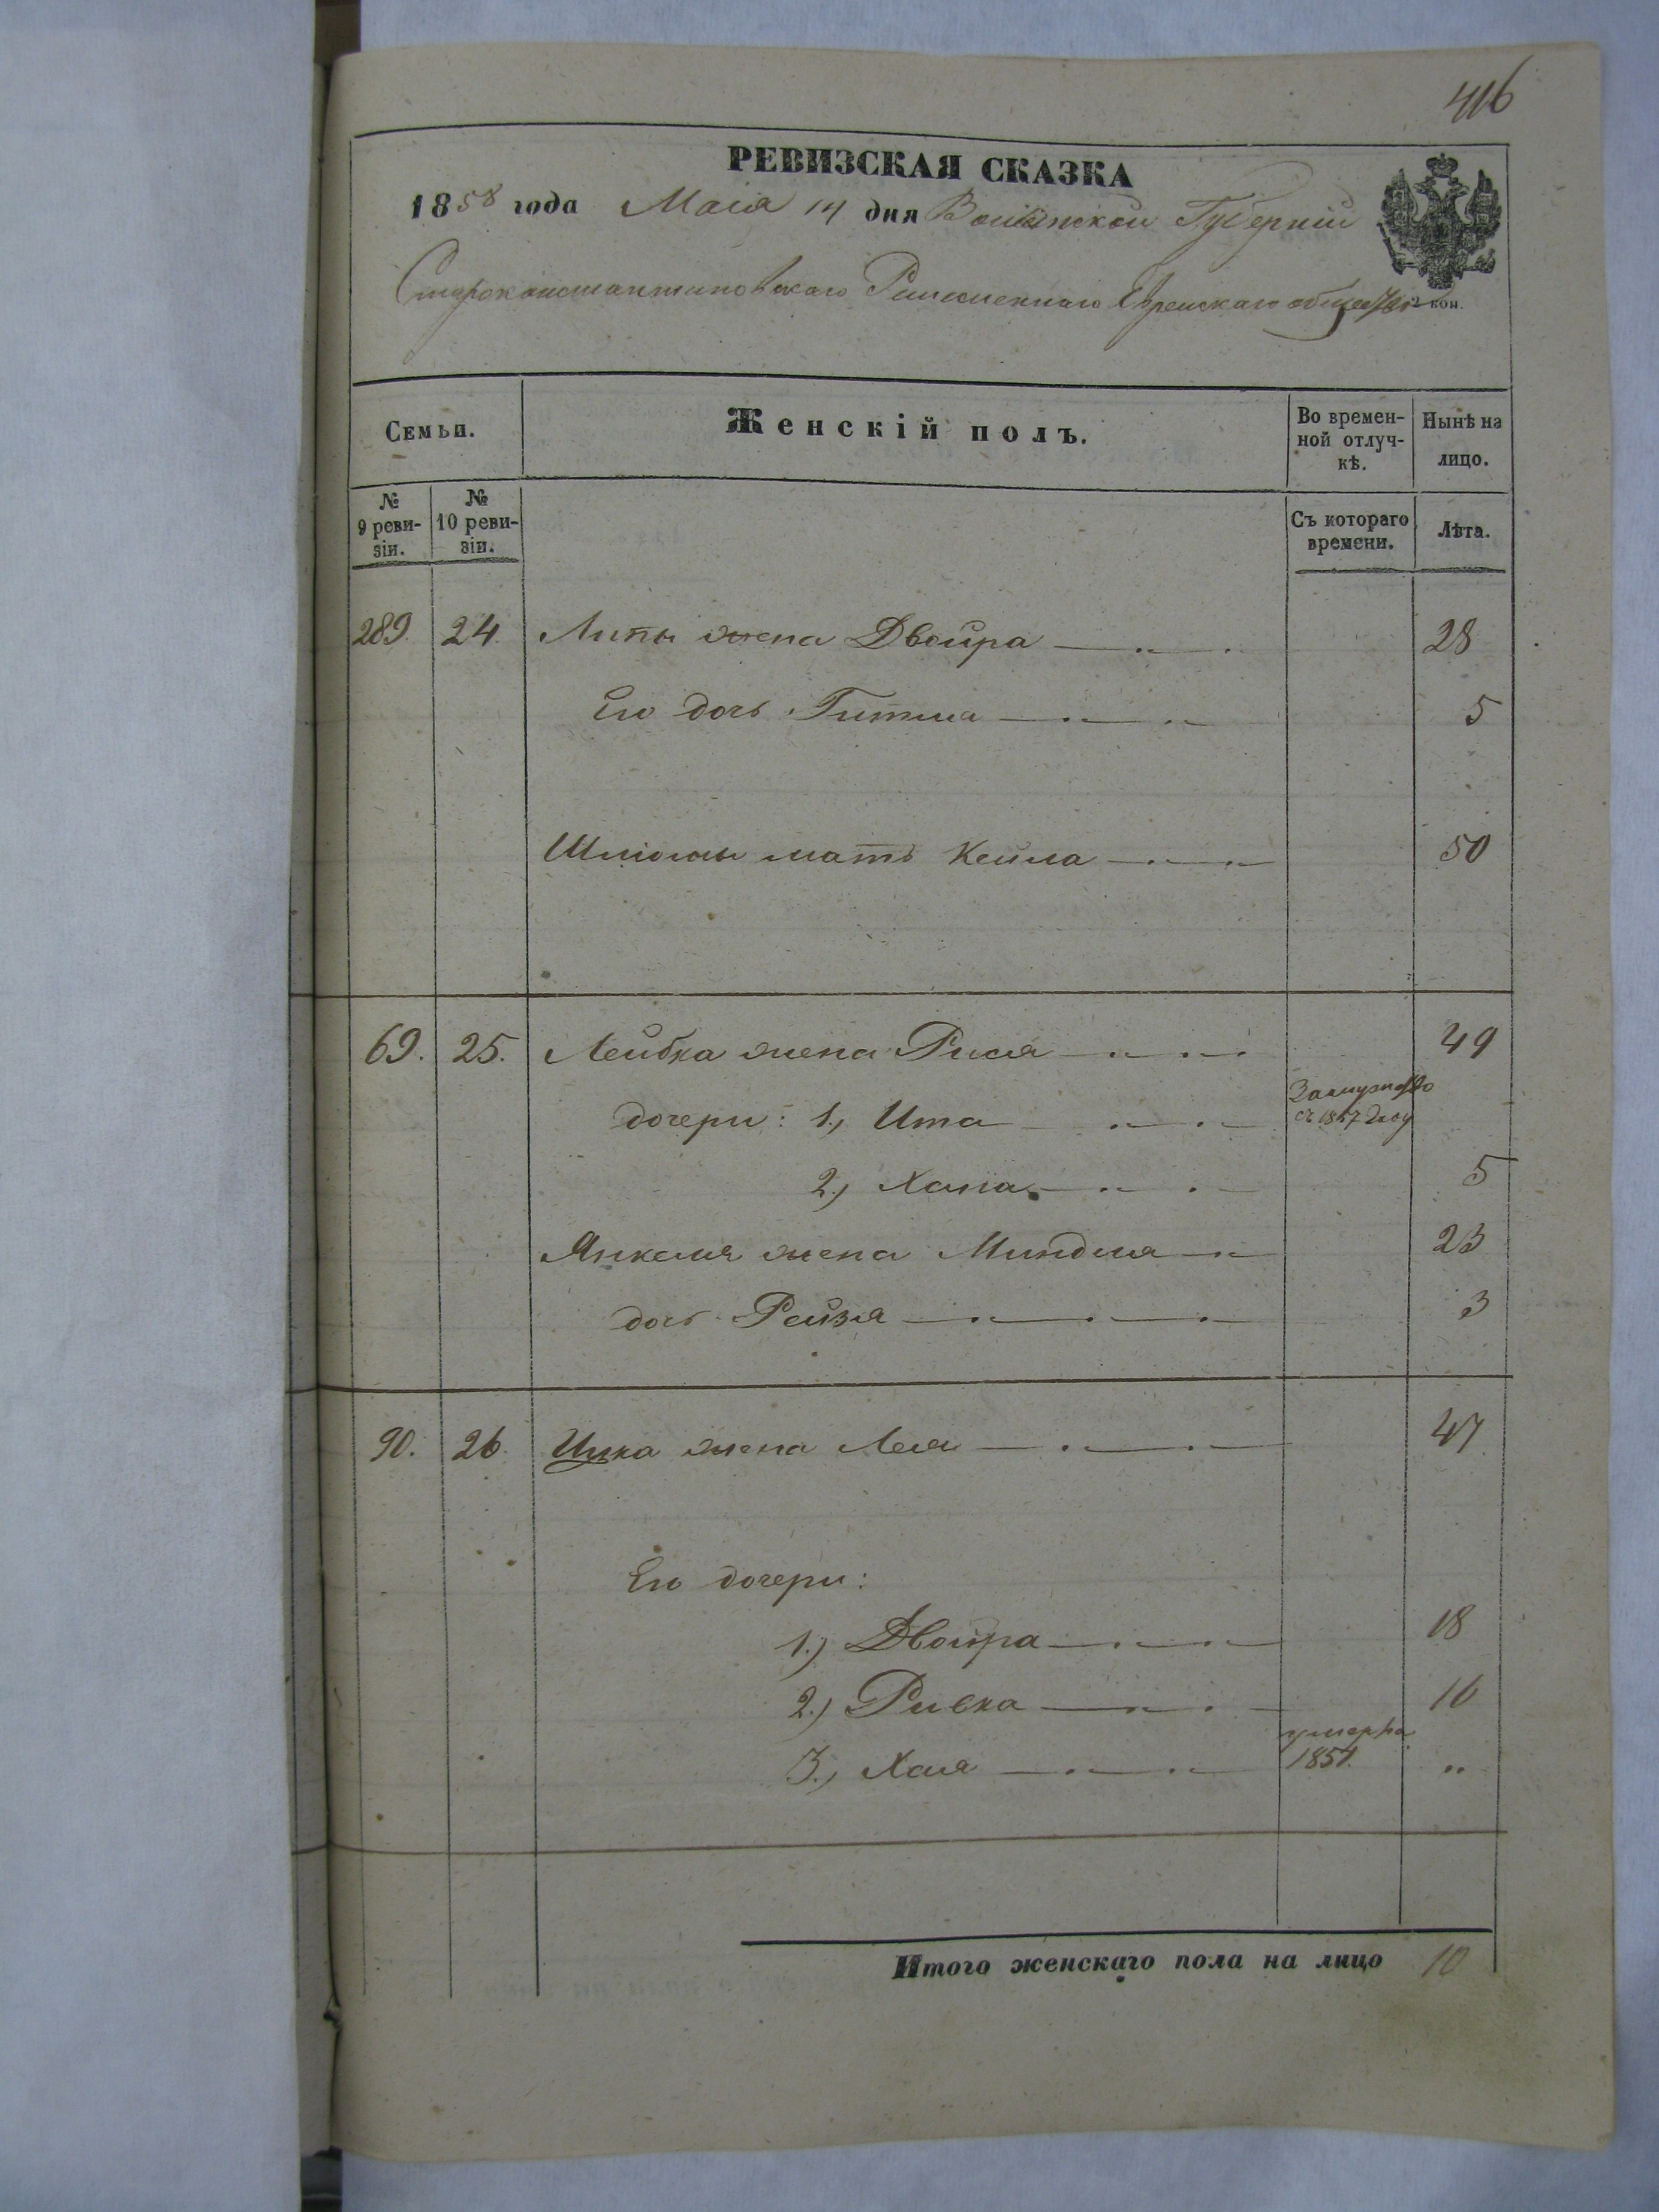 416
РЕВИЗСКАЯ СКАЗКА
1858 года Маія 14 дня Волынской Губерніи
Староконстантиновскаго Ремесленнаго Еврейскаго общества
коп.
Семьи. Женскій полъ. Во времен- Нынѣ на
ной отлуч- лицо.
кѣ.
№ № Съ котораго Лѣта.
9 реви- 10 реви- времени.
зіи. зіи.
289. 24. Липы жена Двойра 28
Его дочь Гитля 5
Шліомы мать Кейла 50
69. 25. Лейбка жена Рися 49
дочери: 1., Ита Замужество
съ 1857 году
2., Хана 5
Янкеля жена Миндля 23
дочь Рейзя 3
90. 26. Ицка жена Лея 47
Его дочери:
1.) Двойра 18
2.) Ривка 16
3., Хая умерла
1854. "
Итого женскаго пола на лицо 10